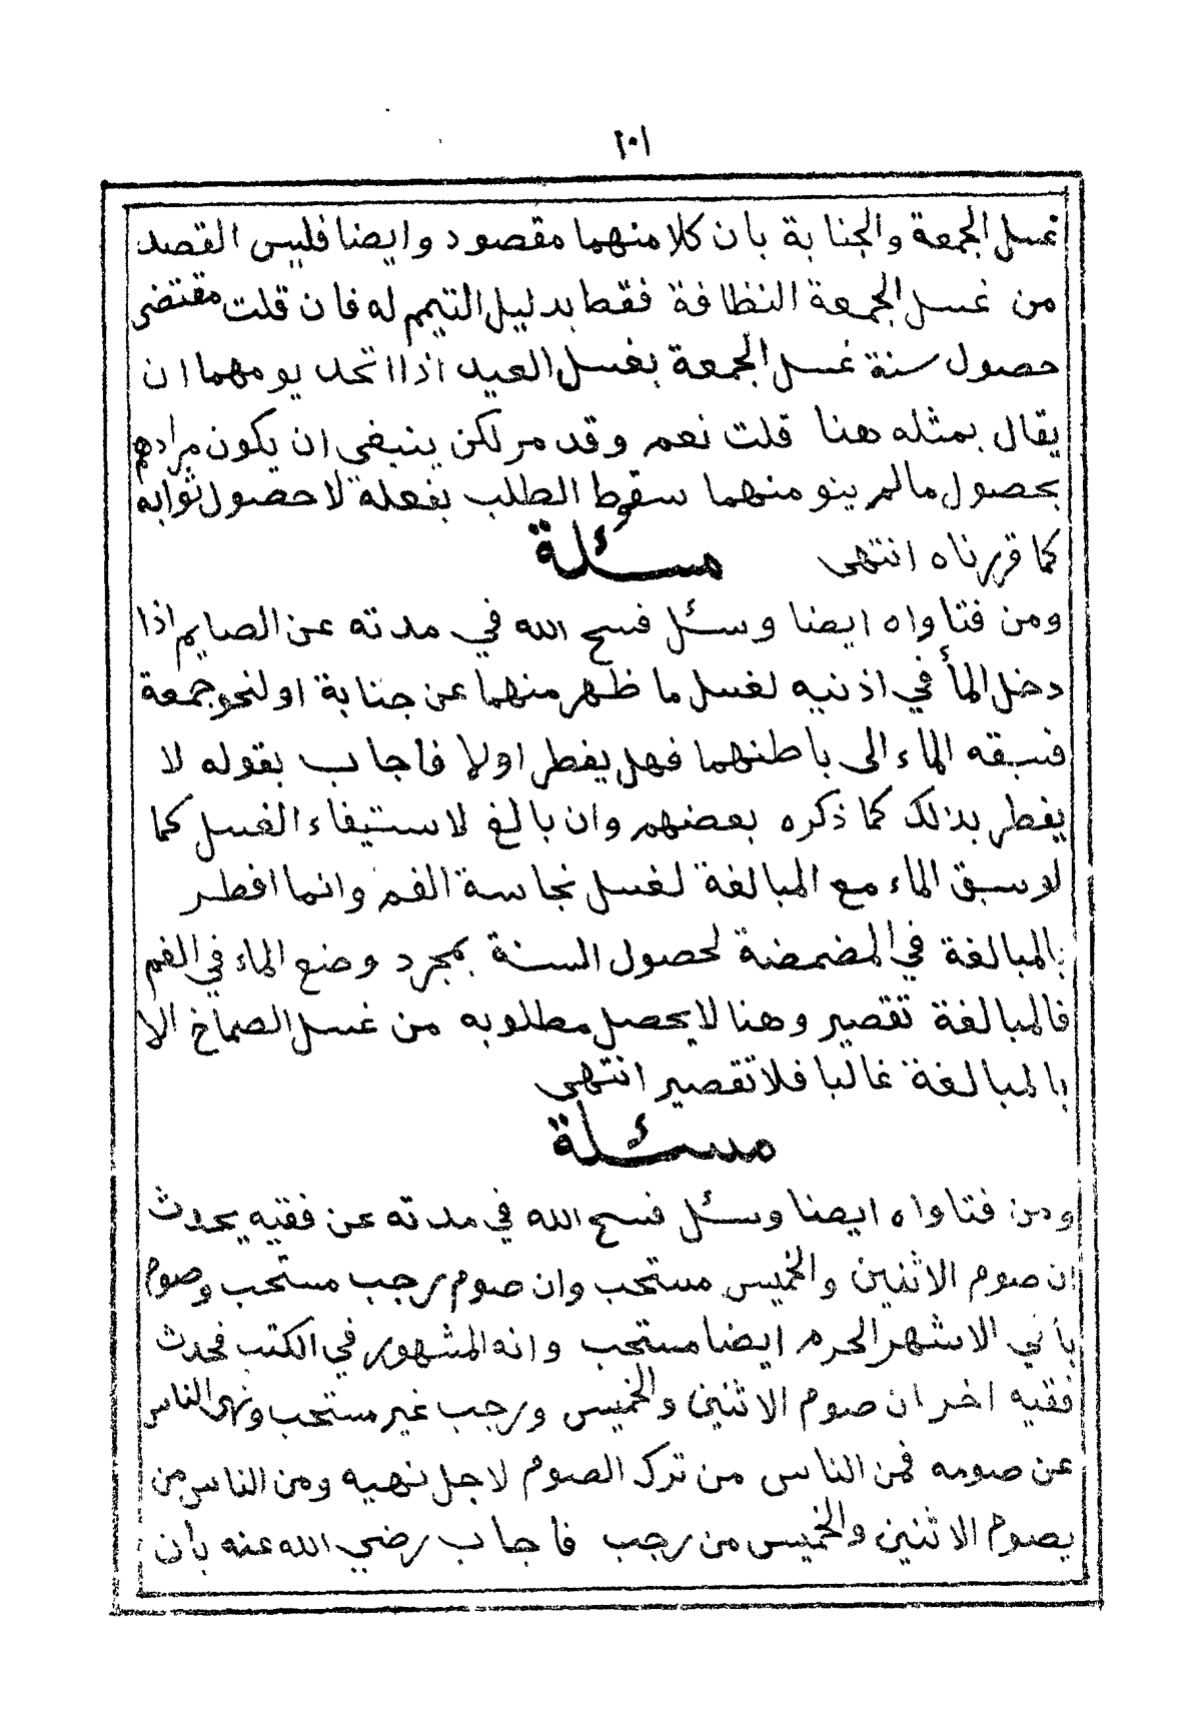 ١٠١
غسل الجمعة والجنابة بان كلا منهما مقصود وايضا فليس القصد
من غسل الجمعة النظافة فقط بدليل التيمم له فان قلت مقتضى
حصول سنة غسل الجمعة بغسل العيد اذا اتحد يومهما ان
يقال بمثله هنا قلت نعم وقد مر لكن ينبغي ان يكون مرادهم
بحصول ما لم ينو منهما سقوط الطلب بفعله لا حصول ثوابه
كما قررناه انتهى مسئلة
ومن فتاواه ايضا وسئل فسح الله في مدته عن الصايم اذا
دخل المأ في اذنيه لغسل ما ظهر منهما عن جنابة او لنحو جمعة
فسبقه الماء الى باطنهما فهل يفطر اولا فاجاب بقوله لا
يفطر بذلك كما ذكره بعضهم وان بالغ لاستيفاء الغسل كما
لو سبق الماء مع المبالغة لغسل نجاسة الفم وانما افطر
بالمبالغة في المضمضة لحصول السنة بمجرد وضع الماء في الفم
فالمبالغة تقصير وهنا لا يحصل مطلوبه من غسل الصماخ الا
بالمبالغة غالبا فلا تقصير انتهى
مسئلة
ومن فتاواه ايضا وسئل فسح الله في مدته عن فقيه يحدث
ان صوم الاثنين والخميس مستحب وان صوم رجب مستحب وصوم
باقي الاشهر الحرم ايضا مستحب وانه المشهور في الكتب فحدث
فقيه اخر ان صوم الاثنين والخميس ورجب غير مستحب ونهى الناس
عن صومه فمن الناس من ترك الصوم لاجل نهيه ومن الناس من
يصوم الاثنين والخميس من رجب فاجاب رضي الله عنه بأن